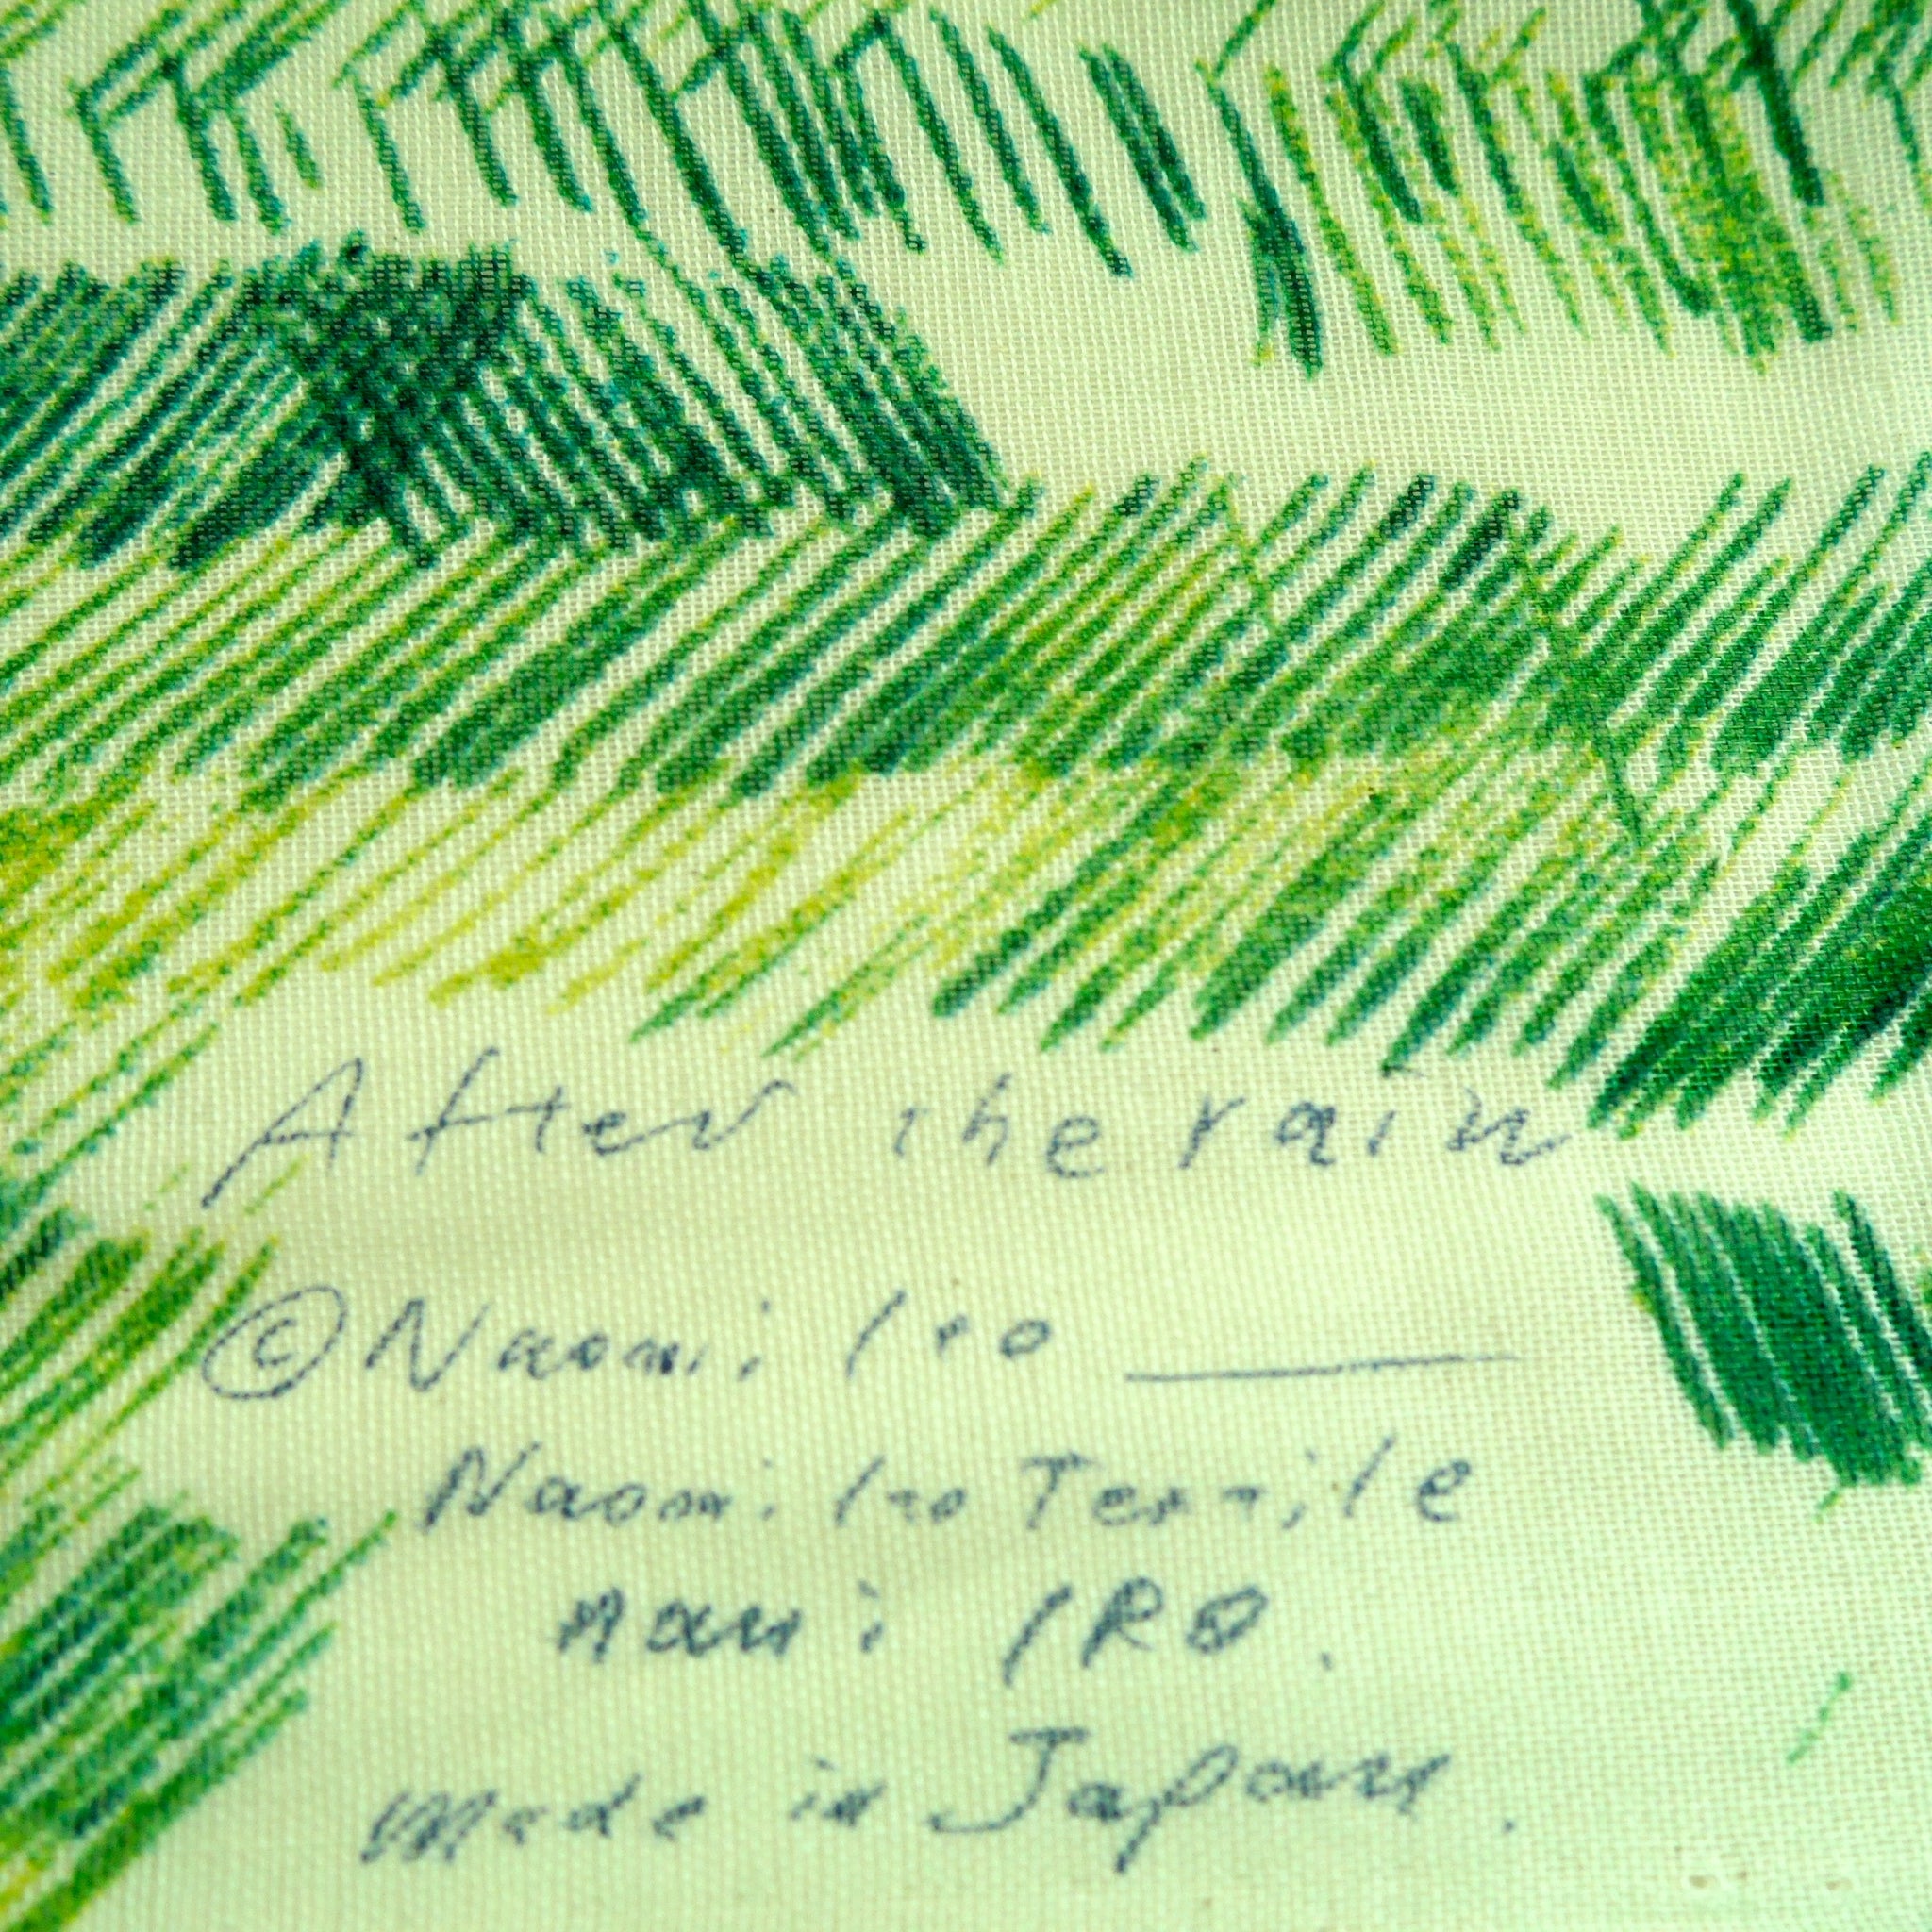 After the rain
©Naomi Ito
Naomi Ito Textile
nani IRO.
made in Japan.